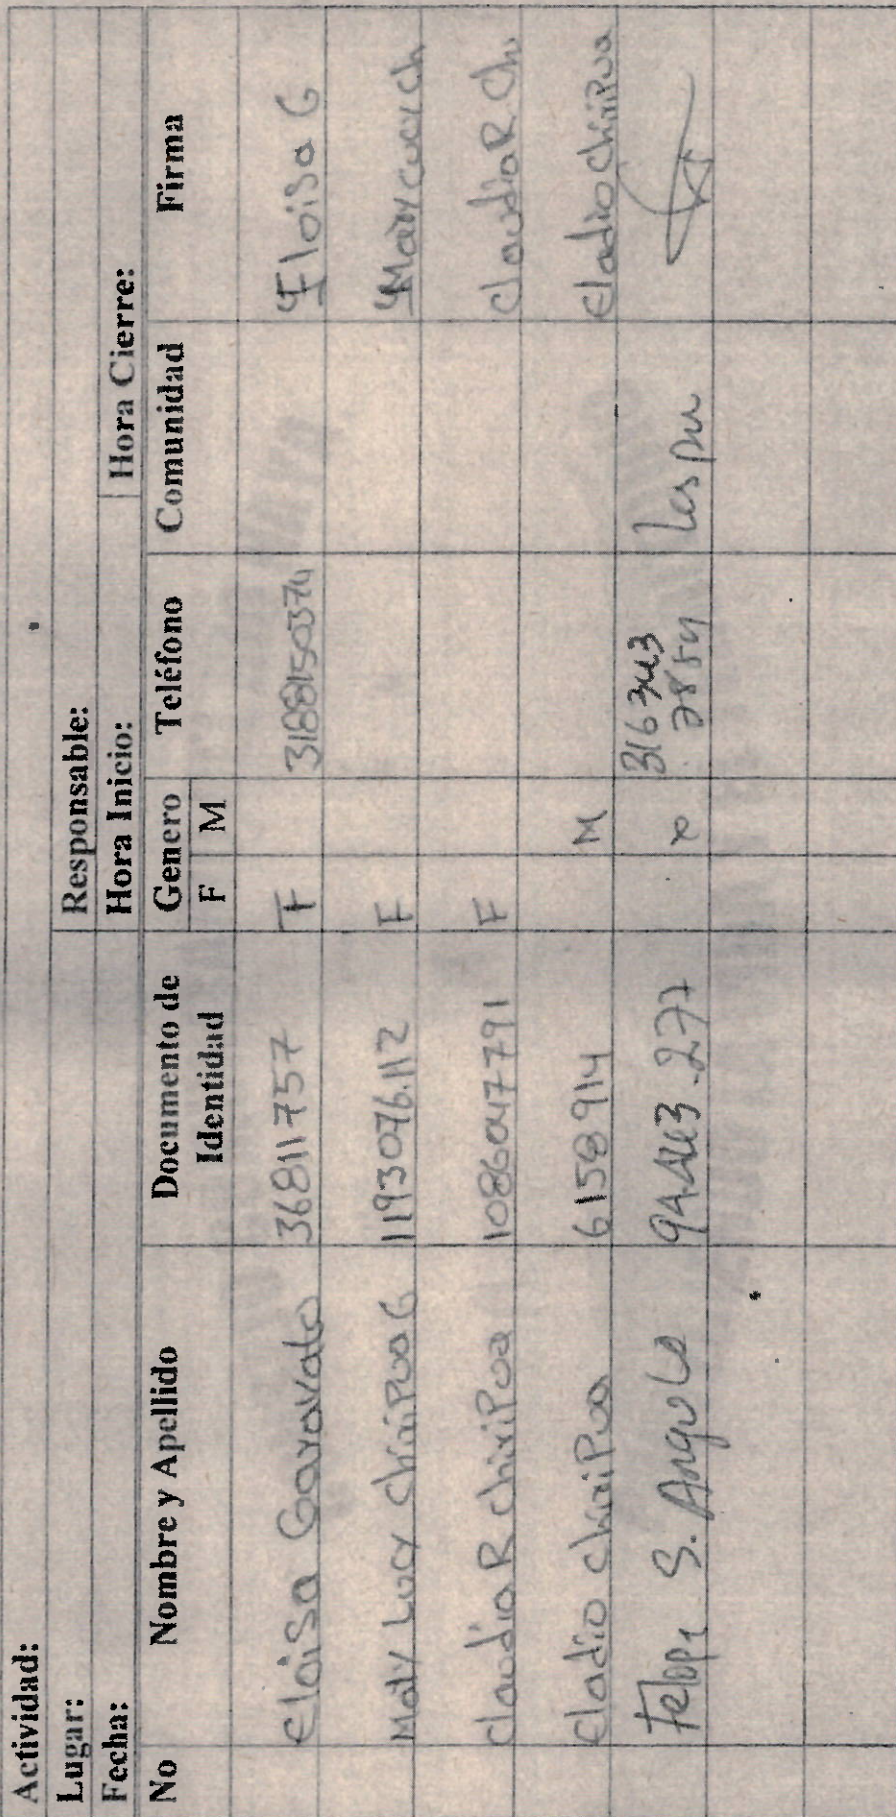 Actividad:
Lugar: Responsable:
Fecha: Hora Inicio: Hora Cierre:
No Nombre y Apellido Documento de Identidad Genero F M Teléfono Comunidad Firma
Eloisa Garavato 36811757 F 3188150374 Eloisa G
Maly Lucy ChiriPua G 1193076.112 F Mary Lucy Ch
Claudia R ChiriPua 1086047791 F Claudia R Ch.
Eladio ChiriPua 6158914 M Eladio ChiriPua
Felipe S. Angulo 94.443.277 x 316 343 7854